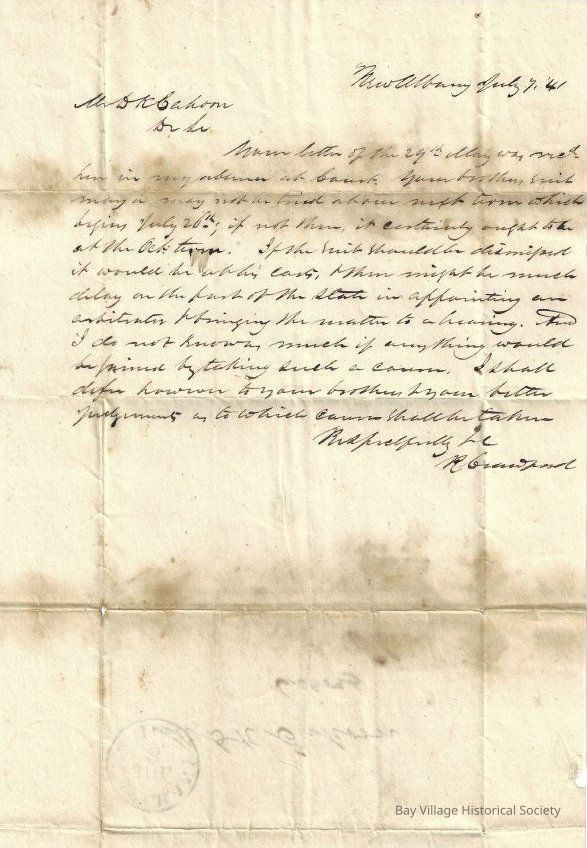 New Albany July 7. 41
Mr D K Cahoon
Dr Sir
Your letter of the 29th May was recd
here in my absence at Court. Your brothers Suit
may or may not be tried at our next term which
begins July 26th; if not then, it certainly ought to be
at the Oct. term. If the Suit should be dismissed
it would be at his costs, & there might be much
delay on the part of the State in appointing an
arbitrator & bringing the matter to a hearing. And
I do not know as much if anything would
be gained by taking such a course. I shall
defer however to your brothers & your better
judgement as to which course shall be taken
Respectfully &c
R Crawford
D K Cahoon
Bay Village Historical Society